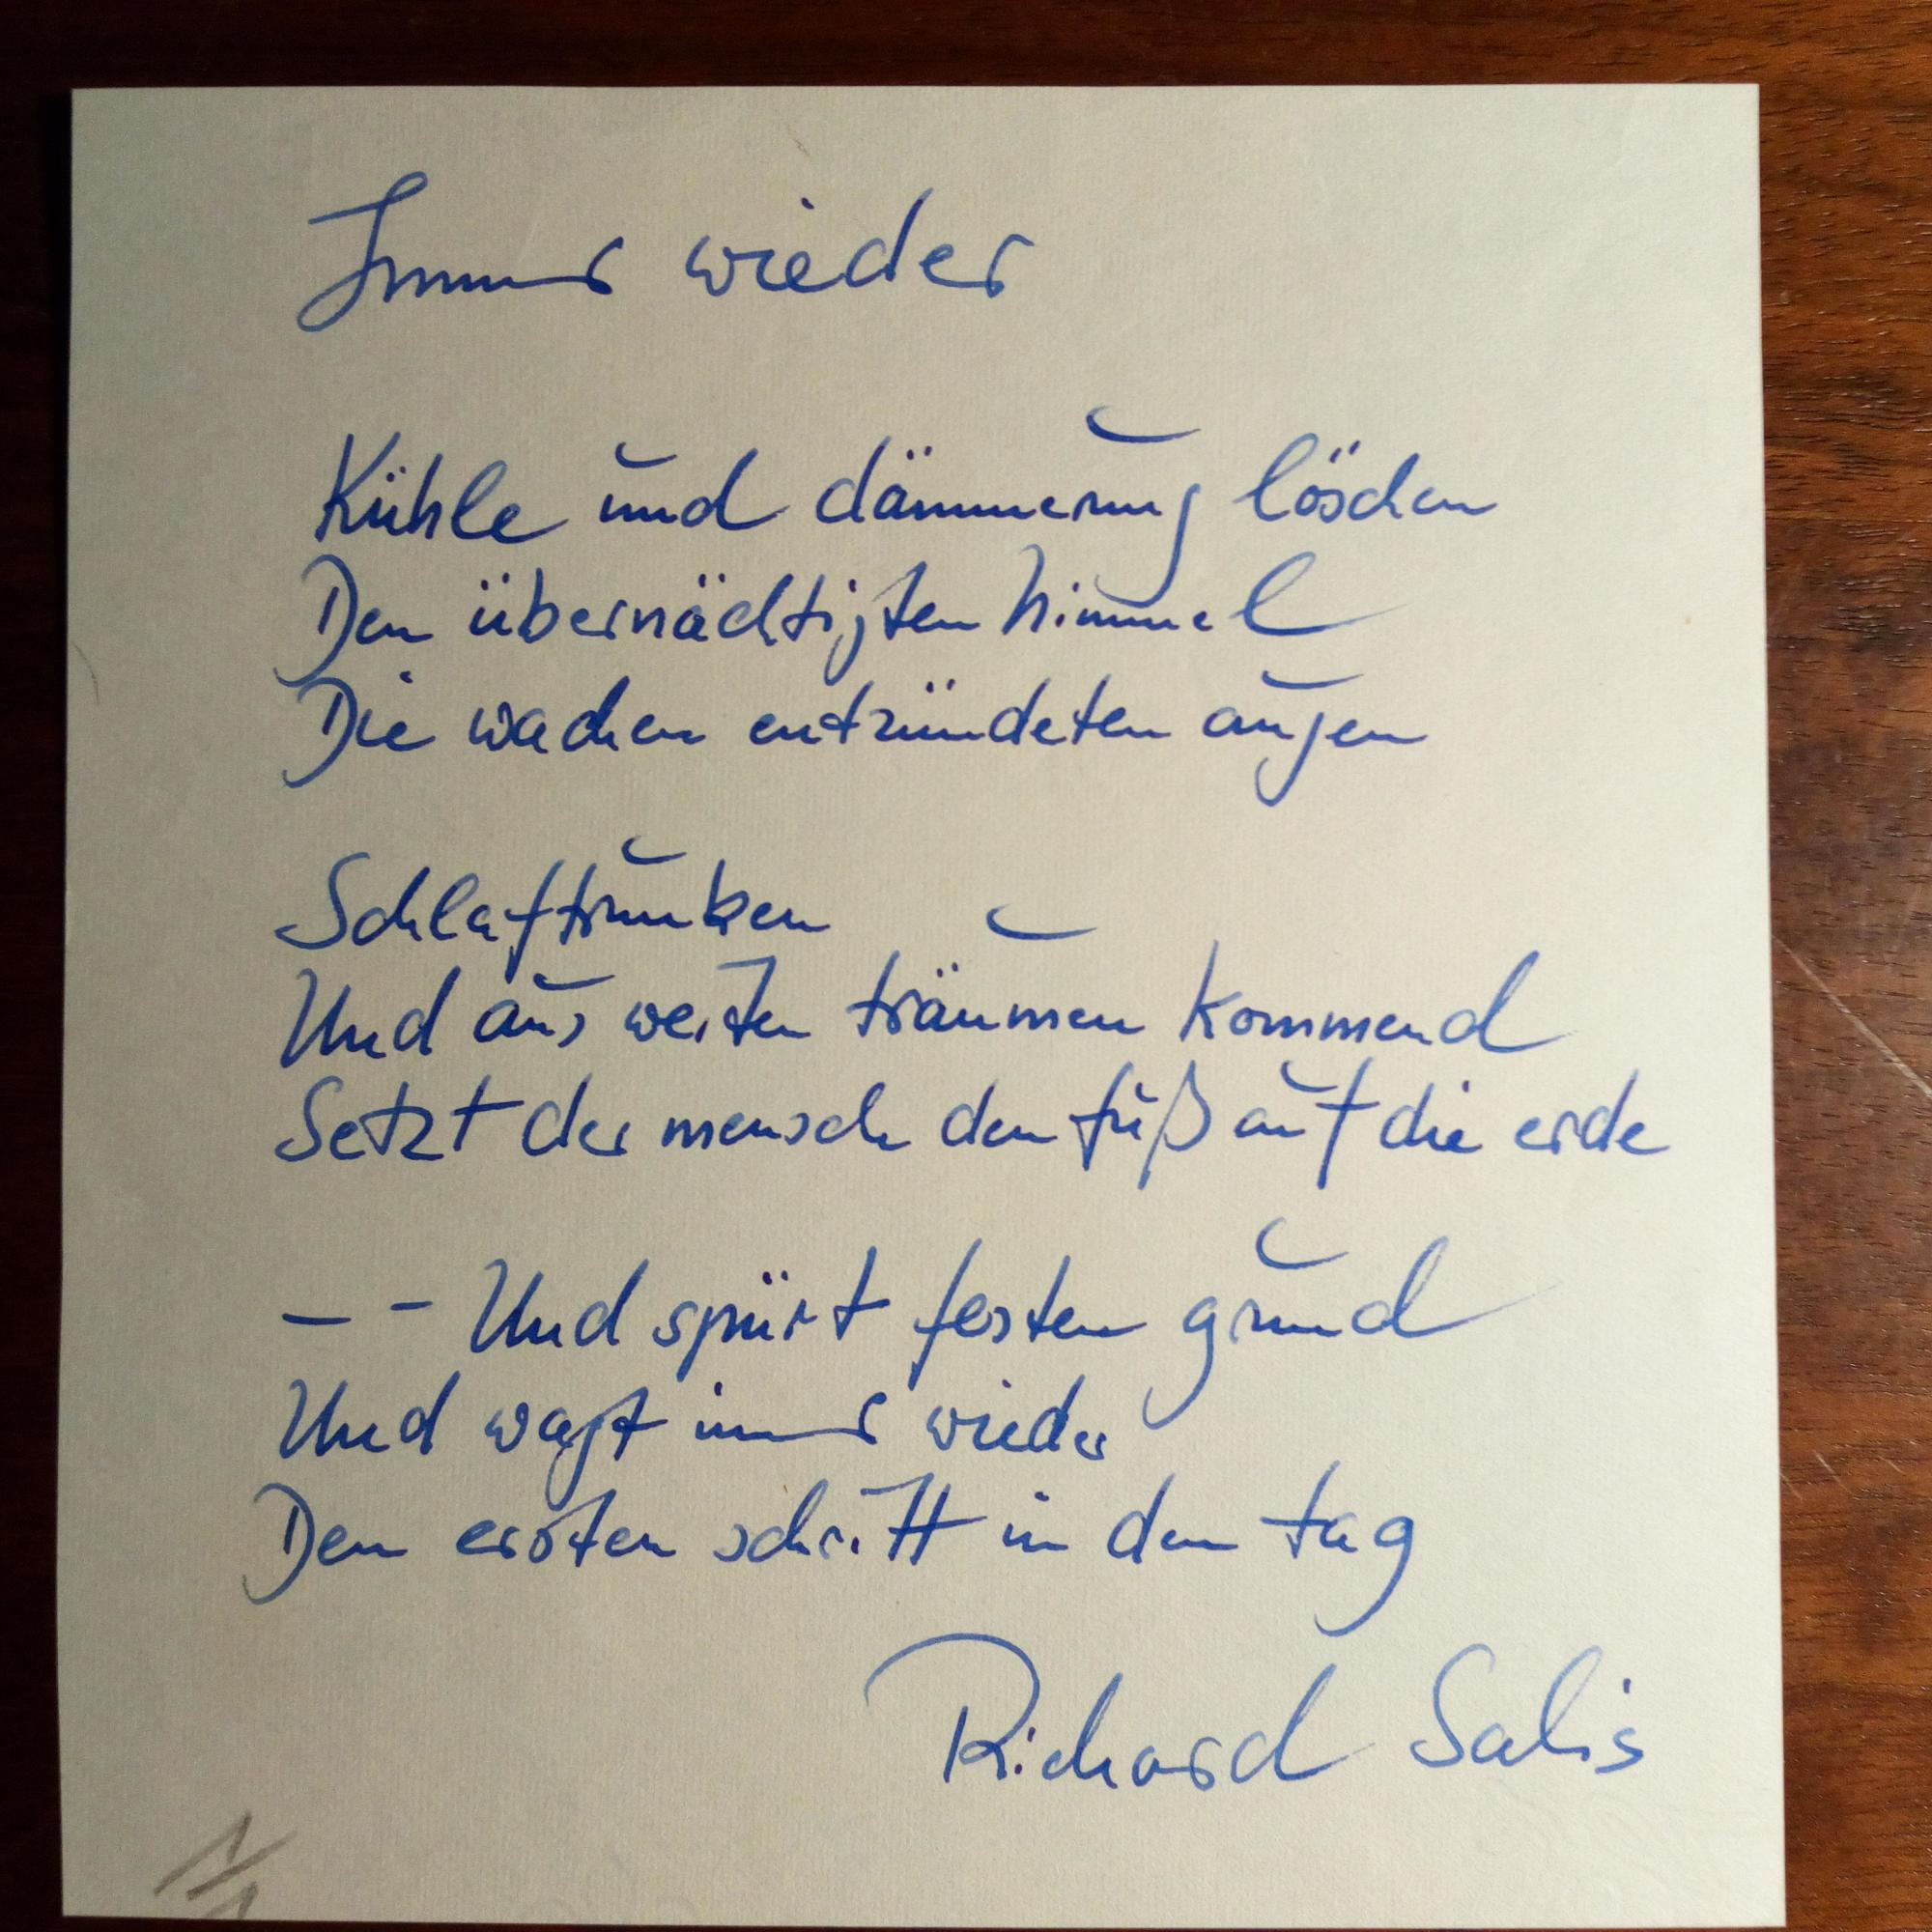 Immer wieder
Kühle und dämmerung löschen
Den übernächtigten himmel
Die wachen entzündeten augen
Schlaftrunken
Und aus weiten träumen kommend
Setzt der mensch den fuß auf die erde
– – Und spürt festen grund
Und wagt immer wieder
Den ersten schritt in den tag
Richard Salis